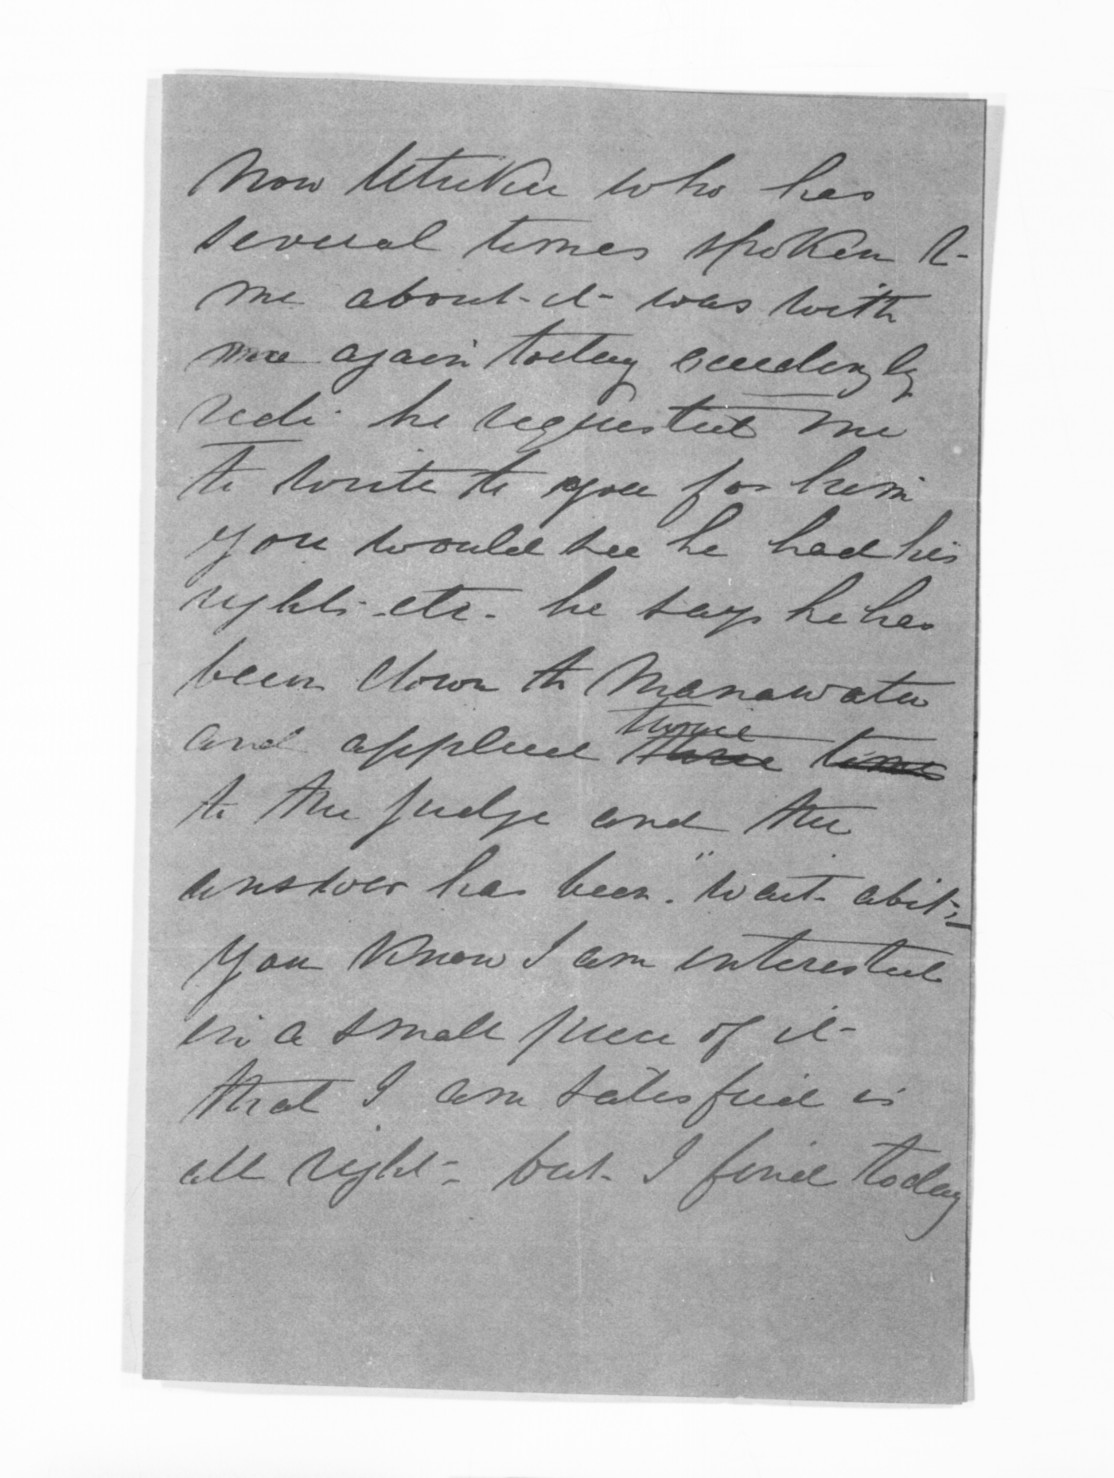 Now Utuku who has
several times spoken to
me about it was with
me again today exceedingly
he requested me
to write to you for him
you would see he had his
rights etc. he says he has
been down to Manawatu
and applied twice three times
to the judge and the
answer has been "wait abit"
You know I am interested
in a small piece of it
that I am satisfied is
all right - but I find today